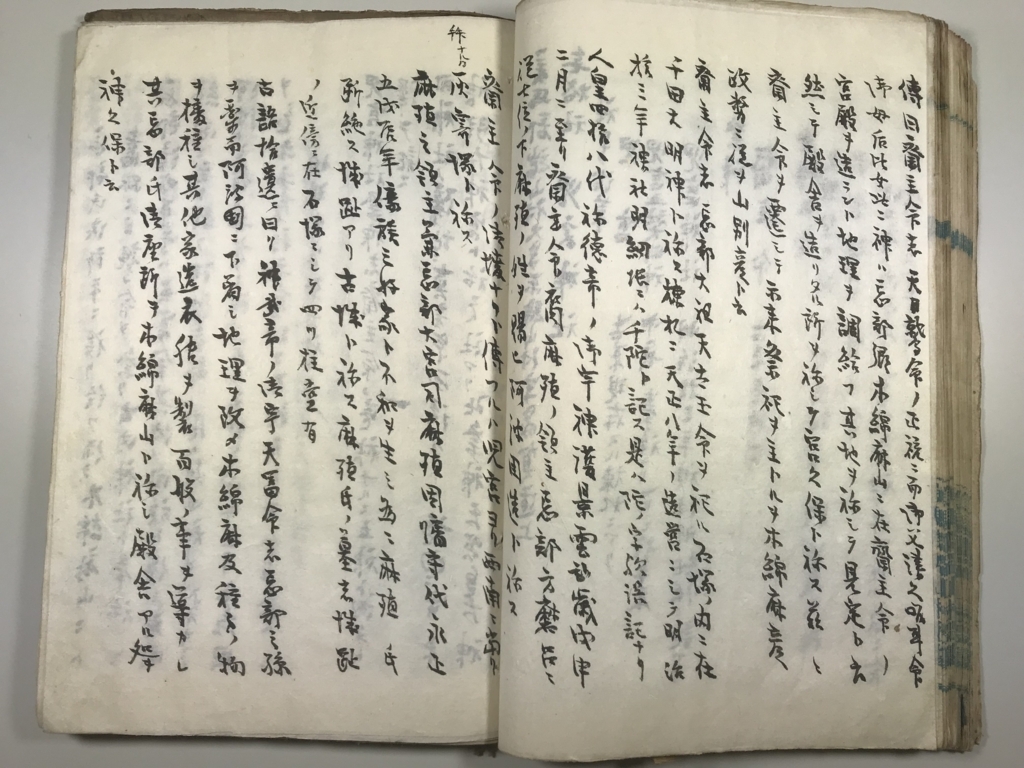 傳曰齋主命者天日鷲命ノ正統ニ而御父津久咋耳命
御母后比女此二神ハ忌部郷木綿麻山ニ在齋主命ノ
宮殿ヲ造ラント地理ヲ調給フ其地ヲ称シテ見定ト云
然シテ殿舎ヲ造リタル所ヲ称シテ宮久保ト称ス茲ニ
齋主命ヲ遷シテ示来祭祀ヲ主トルヲ木綿麻彦
政勢ニ従ヲ山別彦ト云
齋主命者忌部大祖天太玉命ヲ祀ル石塚ノ内ニ在
千田大明神ト称ス棟札ニ天正八年ノ造営ニシテ明治
拾三年神社明細帳ニハ千陀ト記ス是ハ陀ノ字誤記ナリ
人皇四拾八代称徳帝ノ御宇神護景雲弐歳戊申
二月ニ至リ齋主命裔麻殖ノ領主忌部方麿呂ニ
従七位ノ下麻殖ノ姓ヲ賜ヒ阿波国造ト称ス
齋主命ノ御墳ナリト傳フルハ呪吉ヨリ西南ニ當リ
灰寄塚ト称ス
麻殖之領主兼忌部大宮司麻殖因幡守代永正
五戊辰年儔族三好家ト不和ヲ生シ為ニ麻殖氏
断絶ス城趾アリ古城ト称ス麻殖氏ノ墓者城趾
ノ近傍ニ在石塚ニシテ四ツ柱壹有
古語拾遺ニ曰ク神武帝ノ御宇天富命者忌部之孫
ヲ率而阿波国ニ下着シ地理ヲ改メ木綿麻及種々ノ物
ヲ播種シ其他家造衣服ヲ製百般ノ幸ヲ導カレ
其忌部氏御座所ヲ木綿麻山ト称シ殿舎アル処ヲ
神久保ト云